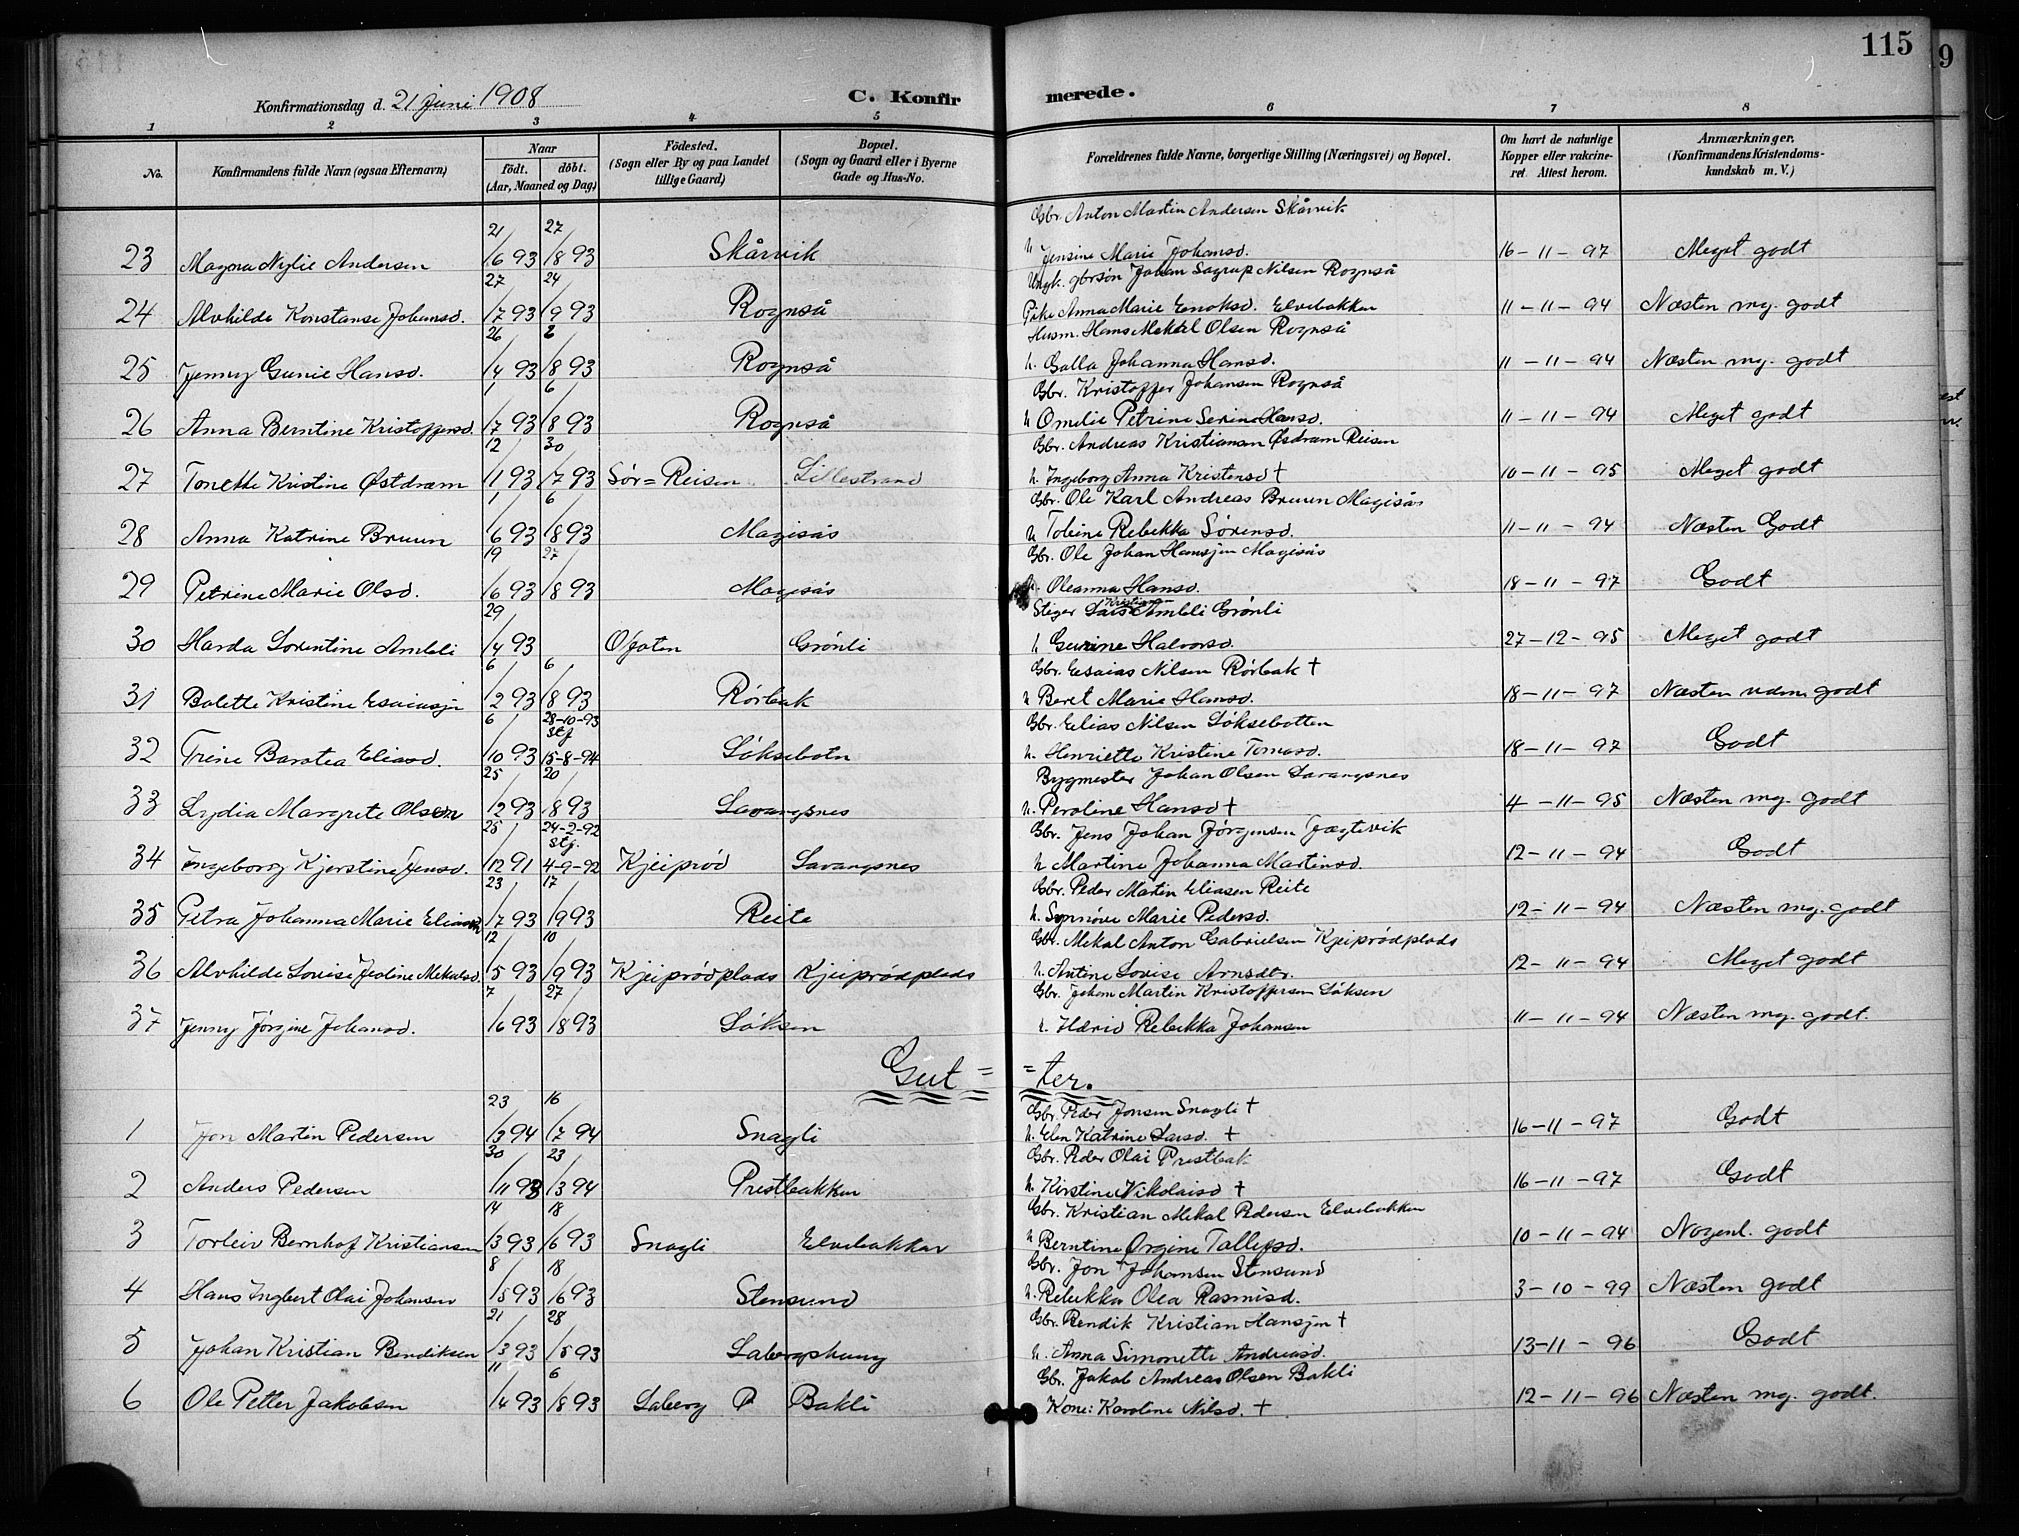 115
9
Konfirmationsdag d. 21 Juni 1908
C. Konfir merede.
1 2 3 4 5 6 7 8
No.
Konfirmandens fulde Navn (ogsaa Efternavn)
Naar
födt. döbt.
(Aar, Maaned og Dag)
Födested.
(Sogn eller By og paa Landet
tillige Gaard)
Bopæl.
(Sogn og Gaard eller i Byerne
Gade og Hus-No.
Forældrenes fulde Navne, borgerlige Stilling (Næringsvei) og Bopæl.
Om havt de naturlige
Kopper eller vakcine-
ret. Attest herom.
Anmærkninger.
(Konfirmandens Kristendoms-
kundskab m. V.)
21 27 Gbr. Anton Martin Andersen Skårvik
23 Magna Nylie Andersen /6 93 /8 93 Skårvik h Jensine Marie Johansd. 16-11-97 Meget godt
27 24 Ungk. gbrsøn Johan Sagrup Nilsen Rognså
24 Alvhilde Konstanse Johansd. /7 93 /9 93 Rognså Pike Anna Marie Enoksd. Elvebakken 11-11-94 Næsten mg. godt
26 2 Husm. Hans Mekal Olsen Rognså
25 Jenny Gunie Hansd. /4 93 /8 93 Rognså h. Galla Johanna Hansd. 11-11-94 Næsten mg. godt
1 6 Gbr. Kristoffer Johansen Rognså
26 Anna Berntine Kristoffersd. /7 93 /8 93 Rognså h Omelie Petrine Serine Hansd. 11-11-94 Meget godt
12 30 Gbr. Andreas Kristiansen Østdram Reisen
27 Tonette Kristine Østdram /1 93 /7 93 Sør=Reisen Lillestrand h. Ingeborg Anna Kristensd † 10-11-95 Meget godt
1 6 Gbr. Ole Karl Andreas Bruun Magisås
28 Anna Katrine Bruun /6 93 /8 93 Magisås h Tobine Rebekka Sørensd. 11-11-94 Næsten Godt
19 27 Gbr. Ole Johan Hansjen Magisås
29 Petrine Marie Olsd. /6 93 /8 93 Magisås h. Oleanna Hansd. 18-11-97 Godt
29 Stiger Lars Kristian Ambli Grønli
30 Harda Lorentine Ambli /4 93 Ofoten Grønli h Gurine Halvorsd. 27-12-95 Meget godt
6 6 Gbr. Esaias Nilsen Rørbak †
31 Bolette Kristine Esaiasjn /2 93 /8 93 Rørbak h Beret Marie Hansd. 18-11-97 Næsten udm. godt
6 28-10-93 Gbr. Elias Nilsen Løksebotten
stf
32 Trine Baratea Eliasd. /10 93 15-8-94 Løksebotn h. Henriette Kristine Tomasd. 18-11-97 Godt
25 20 Bygmester Johan Olsen Lavangsnes
33 Lydia Margrete Olsen /12 93 /8 93 Lavangsnes h. Peroline Hansd † 4-11-95 Næsten mg. godt
25 24-2-92 Gbr. Jens Johan Jørgensen Jægtevik
stf.
34 Ingeborg Kjerstine Jensd. /12 91 4-9-92 Kjeiprød Lavangsnes h Martine Johanna Martinsd. 12-11-94 Godt
23 17 Gbr. Peder Martin Eliasen Reite
35 Petra Johanna Marie Eliasen /7 93 /9 93 Reite h. Synnøve Marie Pedersd. 12-11-94 Næsten mg. godt
12 10 Gbr. Mekal Anton Gabrielsen Kjeiprødplads
36 Alvhilde Lovise Jentine Mekalsd. /5 93 /9 93 Kjeiprødplads Kjeiprødplads h. Antine Lovise Arnsdtr. 12-11-94 Meget godt
7 27 Gbr. Johan Martin Kristoffersen Løksen
37 Jenny Jørgine Johansd. /6 93 /8 93 Løksen h. Hærid Rebekka Johansen 11-11-94 Næsten mg. godt.
Gut= =ter.
23 16 Gbr. Peder Jonsen Snagli †
1 Jon Martin Pedersen /3 94 /7 94 Snagli h. Elen Katrine Larsd. † 16-11-97 Godt
30 23 Gbr. Peder Olai Prestbak
2 Anders Pedersen /11 93 /3 94 Prestbakken h. Kirstine Nikolaisd † 16-11-97 Godt
14 18 Gbr. Kristian Mekal Pedersen Elvebakken
3 Torleiv Bernhof Kristiansen /3 93 /6 93 Snagli Elvebakken h Berntine Ørgine Tallefsd. 10-11-94 Nogenl. godt
8 18 Gbr. Jon Johansen Stensund
4 Hans Ingbert Olai Johansen /5 93 /6 93 Stensund h. Rebekka Olea Rasmisd. 3-10-99 Næsten godt
21 28 Gbr. Bendik Kristian Hansjen †
5 Johan Kristian Bendiksen /3 93 /5 93 Labergshaug h. Anna Simonette Andreasd. 13-11-96 Godt
11 6 Gbr. Jakob Andreas Olsen Bakli
6 Ole Petter Jakobsen /4 93 /8 93 Laberg P Bakli Kone: Karoline Nilsd. † 12-11-96 Næsten mg. godt.